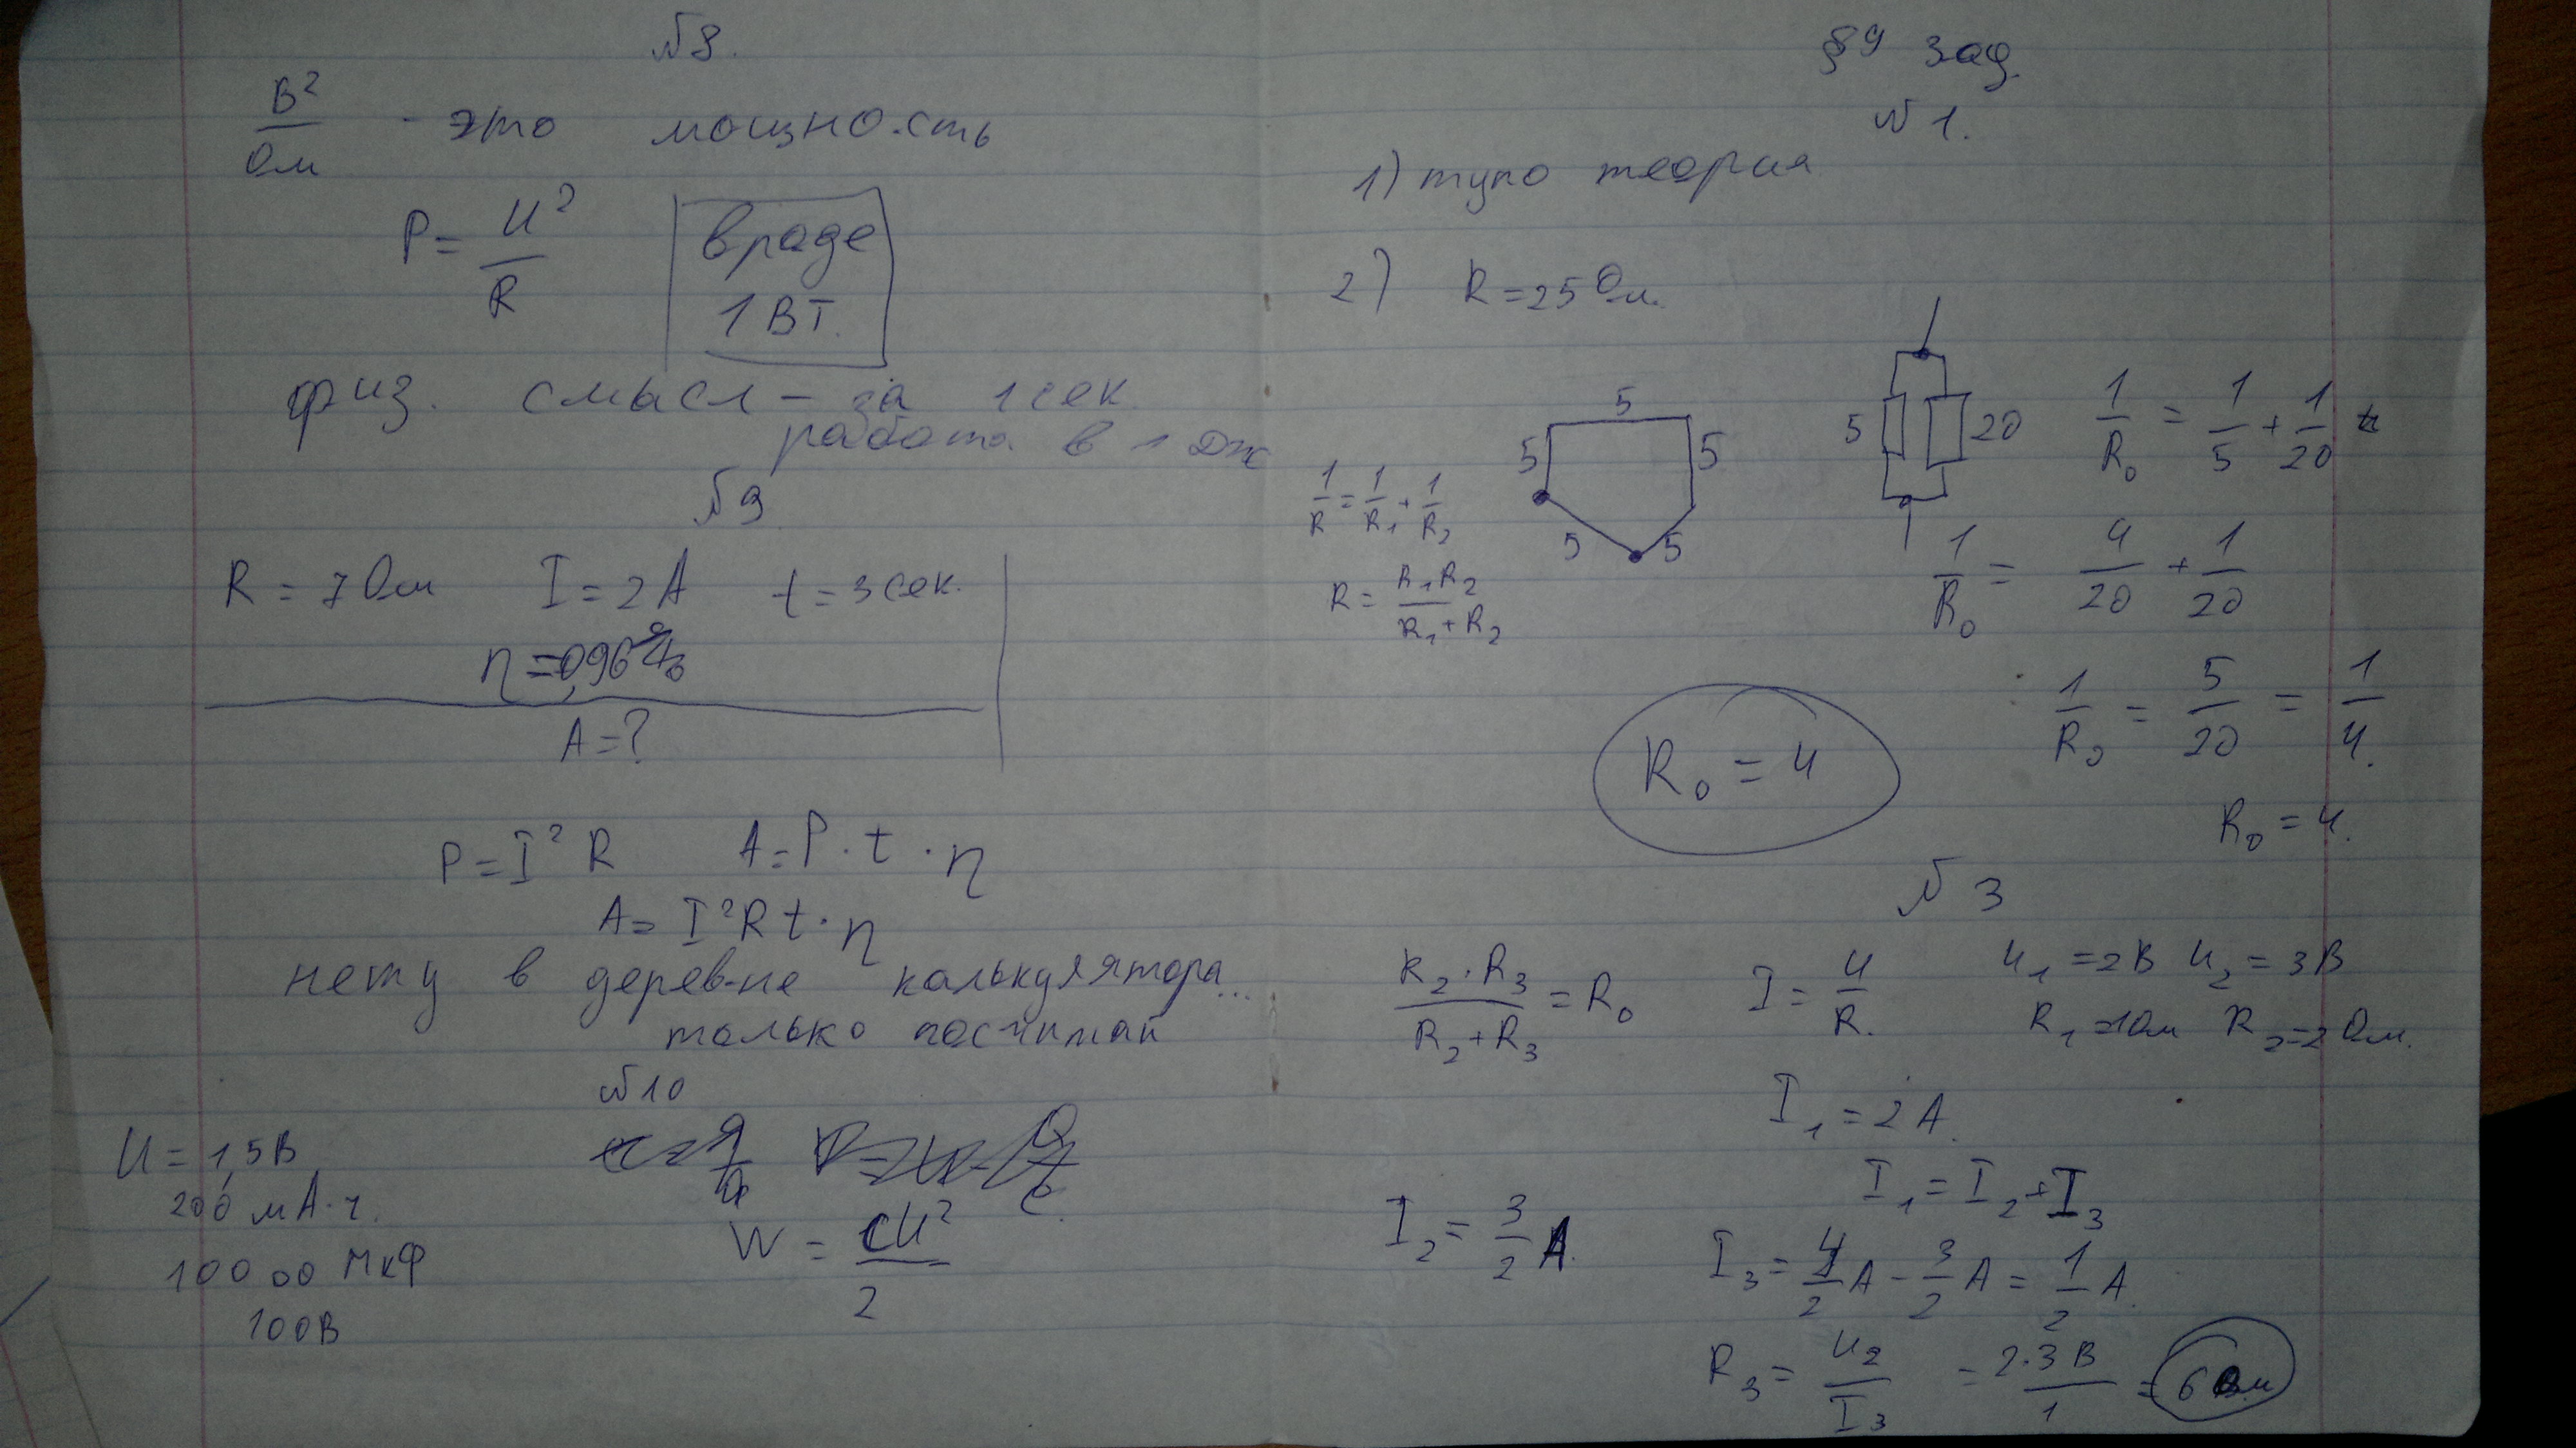 №8.
В²/Ом - это мощность
P = U²/R
вроде
1 Вт.
физ. смысл - за 1 сек.
работа в 1 Дж
№9
R = 7 Ом I = 2 А t = 3 сек.
η = 0,96
A = ?
P = I²R A = P · t · η
A = I²Rt · η
нету в деревне калькулятора...
только посчитай
№10
U = 1,5 В
200 мА·ч.
10000 МкФ
100 В
W = CU²/2
§9 зад.
№1.
1) тупо теория
2) R = 25 Ом.
5
5
5
5
5
1/R = 1/R₁ + 1/R₂
R = R₁R₂/(R₁ + R₂)
5
20
1/R₀ = 1/5 + 1/20
1/R₀ = 4/20 + 1/20
1/R₀ = 5/20 = 1/4.
R₀ = 4.
R₀ = 4
№3
R₂·R₃/(R₂ + R₃) = R₀ I = U/R. U₁ = 2 В U₂ = 3 В
R₁ = 1 Ом R₂ = 2 Ом.
I₁ = 2 А.
I₁ = I₂ + I₃
I₂ = 3/2 А.
I₃ = 4/2 А - 3/2 А = 1/2 А.
R₃ = U₂/I₃ = 2·3 В/1 = 6 Ом